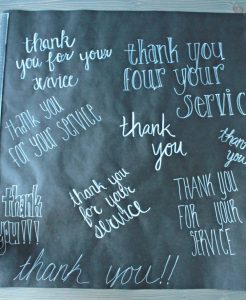 thank
you for your
service
thank you
four your
service
thank you
for your service
thank
you
thank
you
thank you
for your
service
THANK YOU
FOR YOUR
SERVICE
thank
you!!!
thank you!!